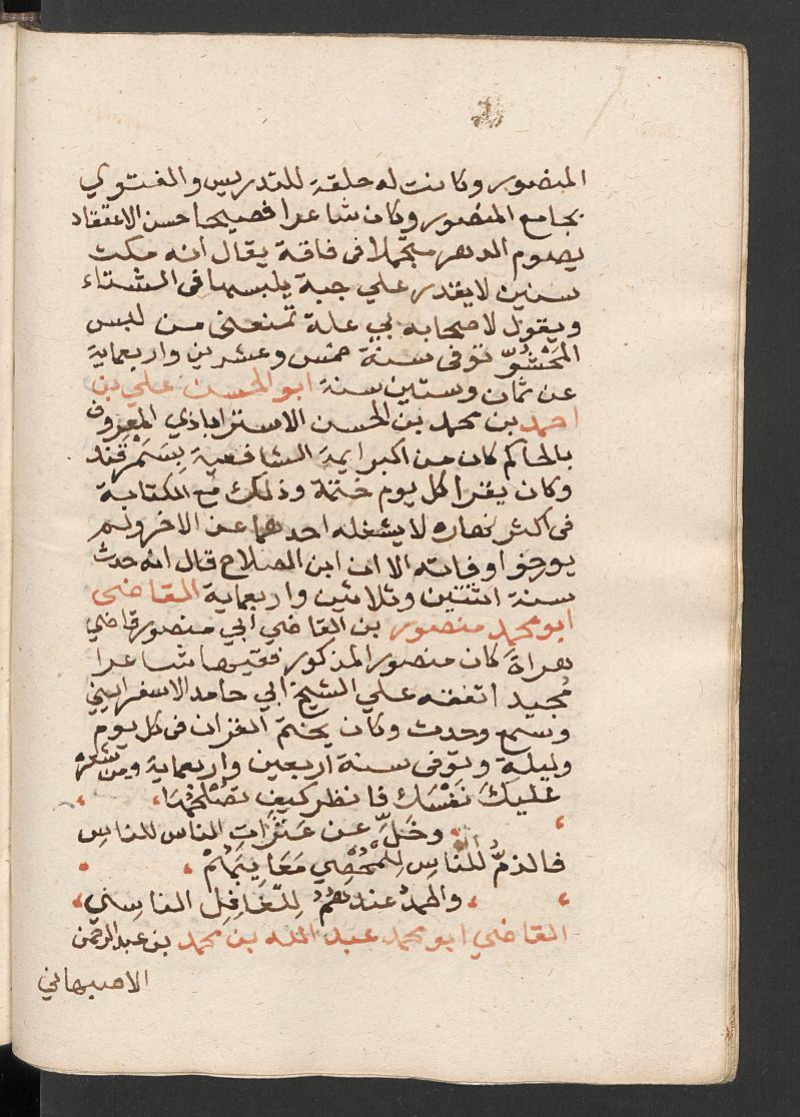 المنصور وكانت له حلقة للتدريس والفتوي
بجامع المنصور وكان شاعرا فصيحا حسن الاعتقاد
يصوم الدهر متجملا في فاقة يقال انه مكث
سنين لا يقدر علي جبة يلبسها في الشتاء
ويقول لاصحابه بي علة تمنعني من لبس
المَحْشُوّ توفى سنة خمس وعشرين واربعماية
عن ثمان وستين سنة ابو الحسن علي بن
احمد بن محمد بن الحسن الاستراباذي المعروف
بالحاكم كان من اكبر ايمة الشافعية بِسَمَرْقند
وكان يقرا كل يوم ختمة وذلك مع الكتابة
في اكثر نهاره لا يشغله احدهما عن الاخر ولم
يورخوا وفاته الا ان ابن الصلاح قال انه حدث
سنة اثنتين وثلاثين واربعماية القاضي
ابو محمد منصور بن القاضي ابي منصور قاضي
هراة كان منصور المذكور فقيها شاعرا
مُجيدا تفقه علي الشيخ ابي حامد الاسفرايني
وسمع وحدث وكان يختم القران في كل يوم
وليلة وتوفى سنة اربعين واربعماية ومن شعره
عليكَ نَفْسَك فانظر كيف تصْلحُهَا
وخَلِّ عن عَثَرَاتِ الناس للناسِ
فالذمُّ للنَّاسِ لِلْمُحْصِي مَعَايبَهُمْ
والحمدُ عندهُمُ لِلْغَافِل الناسِي
القاضي ابو محمد عبد الله بن محمد بن عبد الرحمن
الاصبهاني